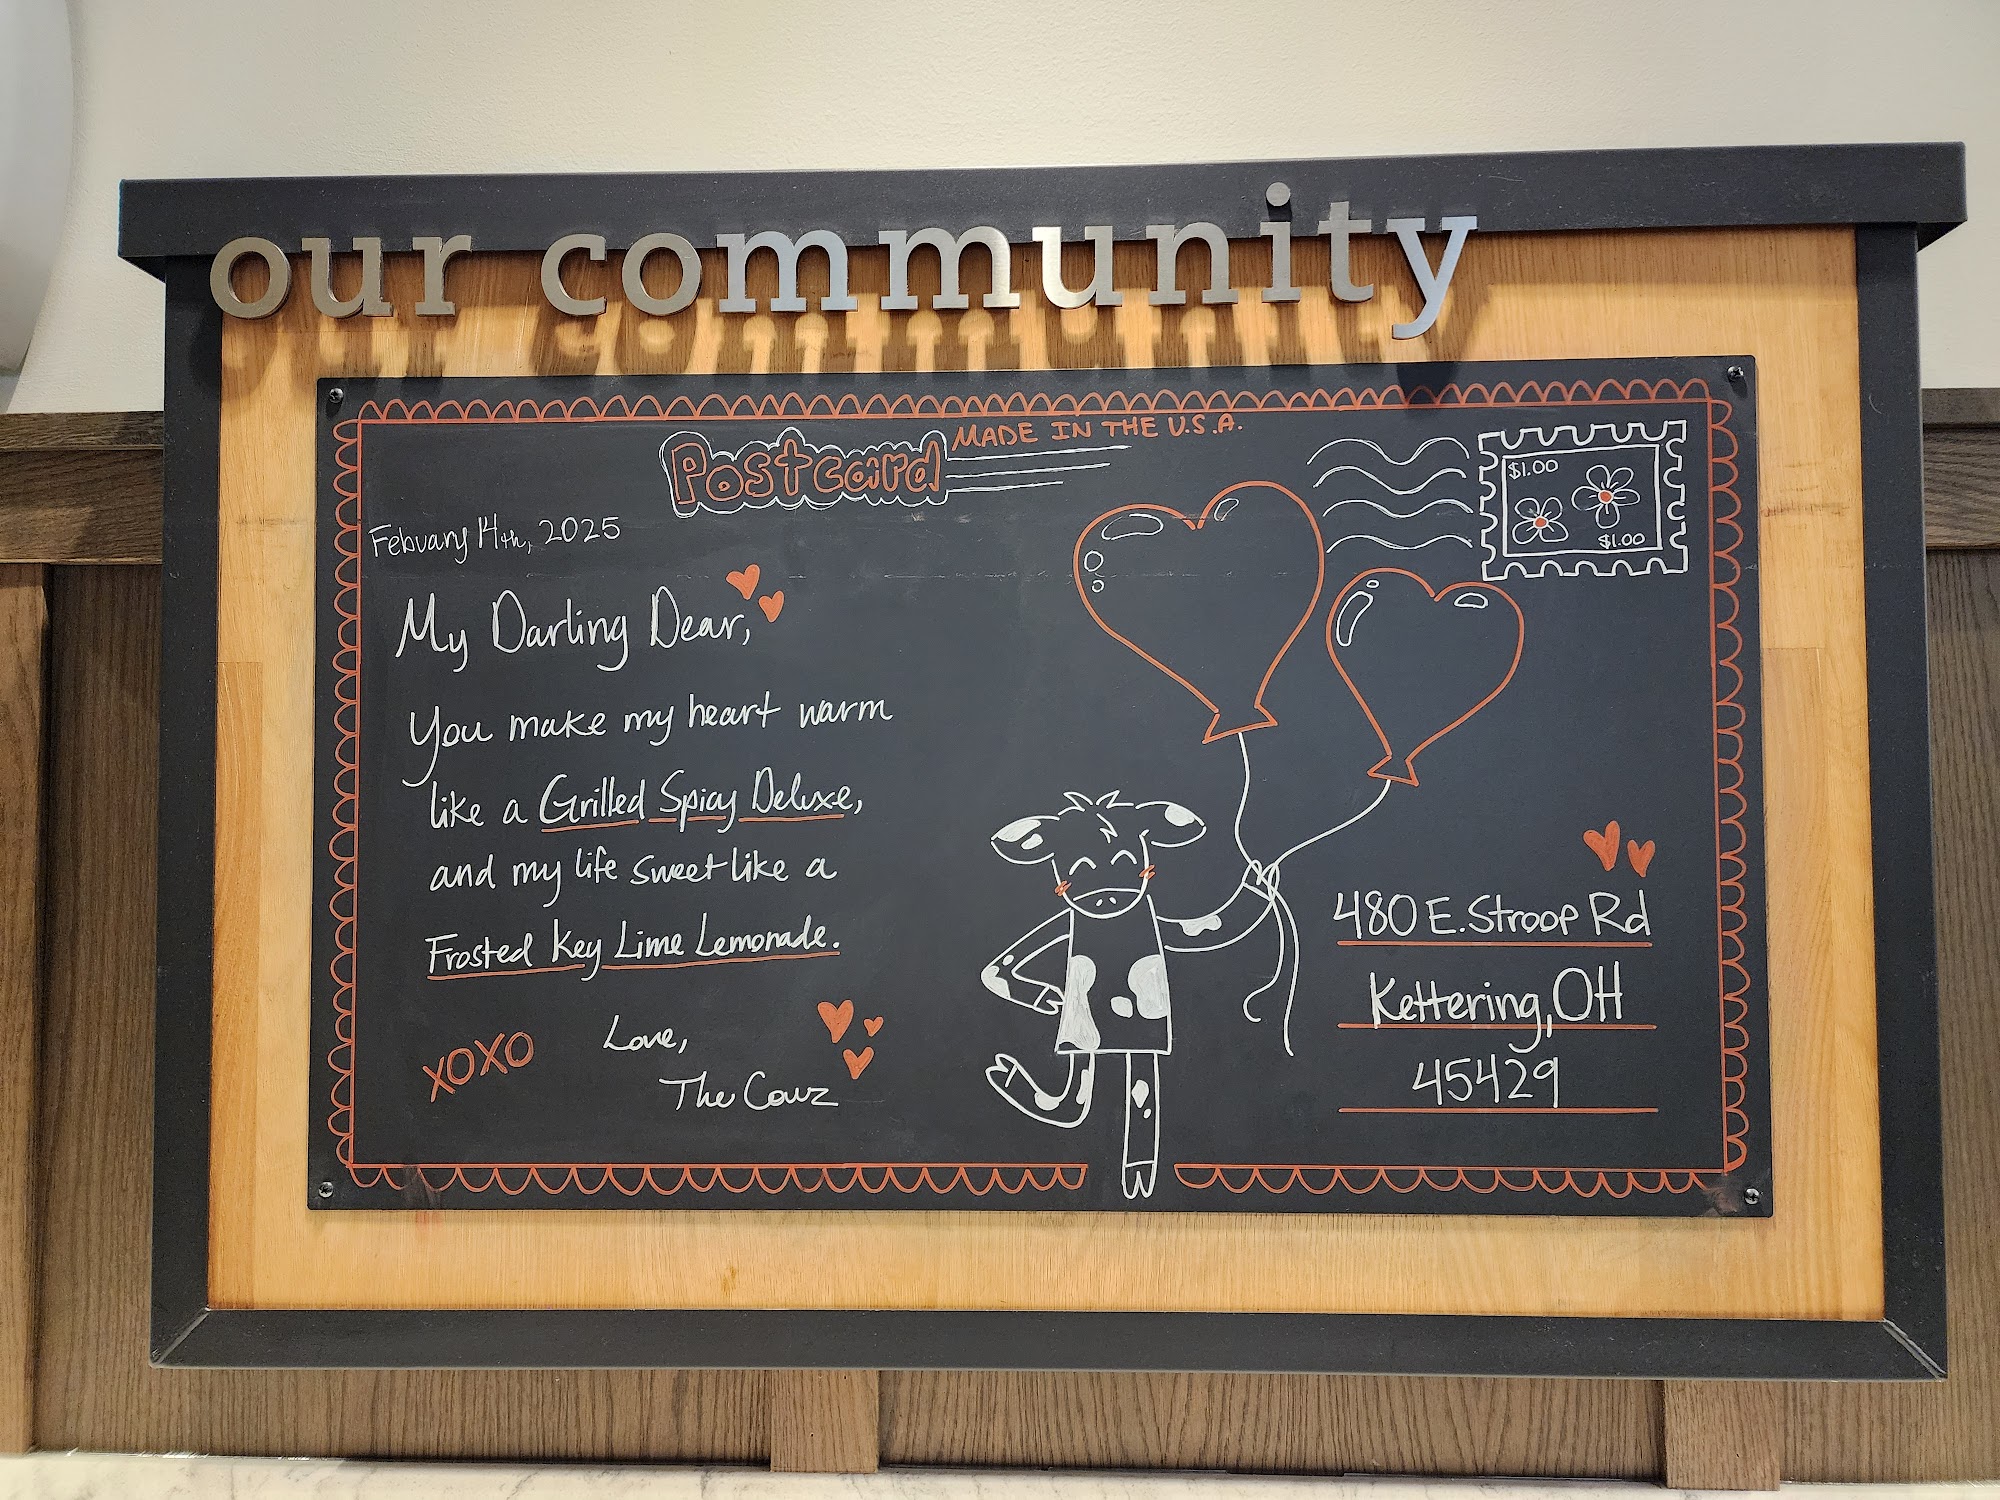 our community
Postcard
MADE IN THE U.S.A.
$1.00
$1.00
Febuary 14th, 2025
My Darling Dear,
You make my heart warm
like a Grilled Spicy Deluxe,
and my life sweet like a
Frosted Key Lime Lemonade.
XOXO
Love,
The Cowz
480 E. Stroop Rd
Kettering, OH
45429